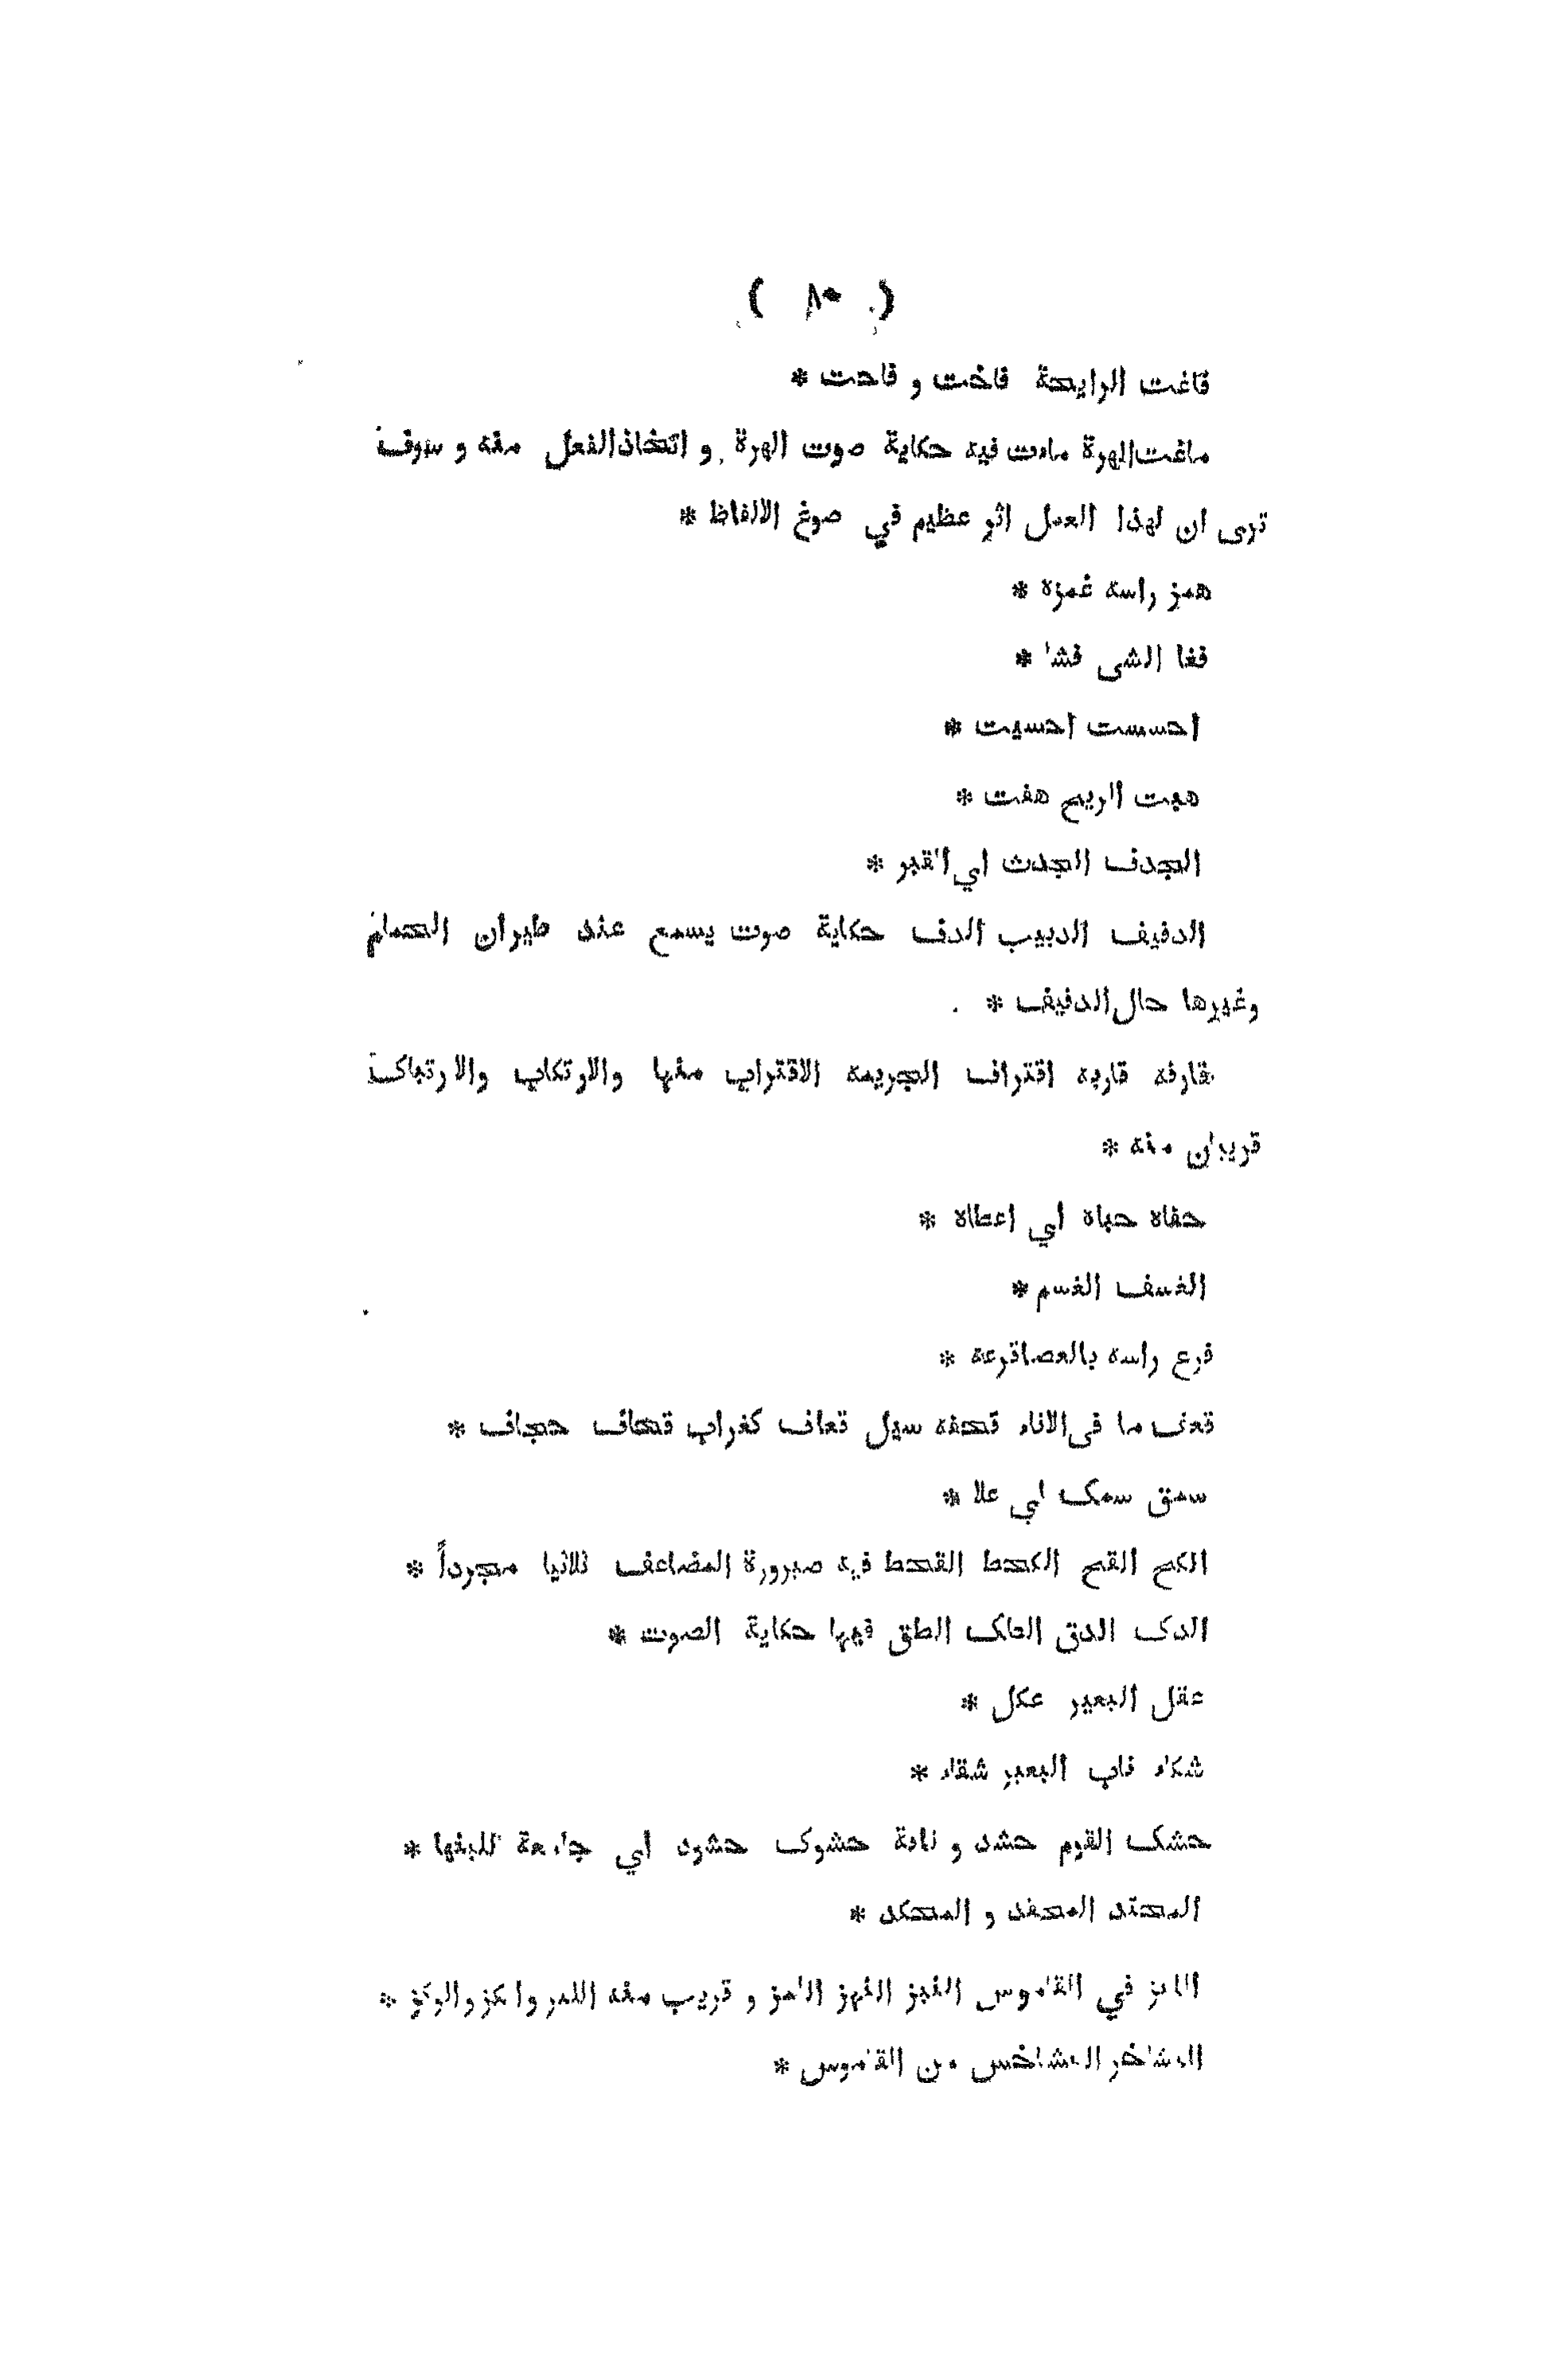 ( ٨٠ )
فاغت الرايحة فاخت و فاحت *
ماغت الهرة ماءت فيه حكاية صوت الهرة و اتخاذ الفعل منه و سوف
ترى ان لهذا العمل اثر عظيم في صوغ الالفاظ *
همز راسه غمزه *
فغا الشى فشا *
احسست احسيت *
هبت الريح هفت *
الجدف الجدث اي القبر *
الدفيف الدبيب الدف حكاية صوت يسمع عند طيران الحمام
وغيرها حال الدفيف *
قارفه قاربه اقتراف الجريمه الاقتراب منها والارتكاب والارتباك
قريبان منه *
حفاه حباه اي اعطاه *
الغسف الغسم *
فرع راسه بالعصا قرعه *
قعف ما فى الاناء قحفه سيل قعاف كغراب قحاف حجاف *
سمق سمك اي علا *
الكح القح الكحط القحط فيه صيرورة المضاعف ثلاثيا مجرداً *
الدك الدق الطق فيها حكاية الصوت *
عقل البعير عكل *
شكاء ناب البعير شقاء *
حشك القوم حشد و ناقة حشوك حشود اي جامعة للبنها *
المحتد المحفد و المحكد *
في القاموس النبز النهز و قريب منه اللمز والوكز *
المشاخر المشاخس من القاموس *